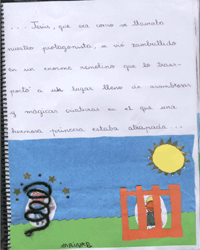 ... Jesús, que así como se llamaba
nuestro protagonista, se vió zambullido
en un enorme remolino que lo trans-
portó a un lugar lleno de asombrosas
y mágicas criaturas en el que una
hermosa princesa estaba atrapada...